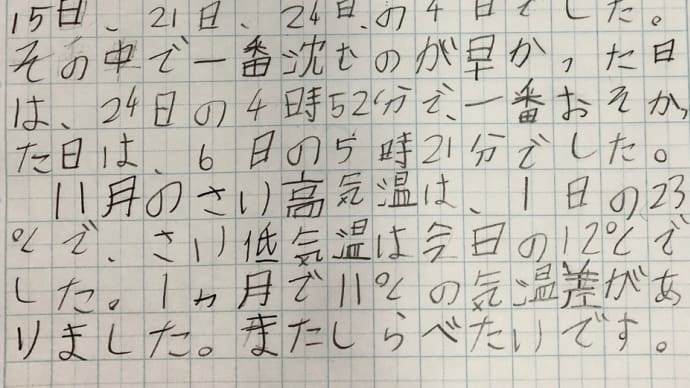 15日、21日、24日、の4日でした。
その中で一番沈むのが早かった日
は、24日の4時52分で、一番おそかっ
た日は、6日の5時21分でした。
11月のさい高気温は、1日の23
℃で、さい低気温は今日の12℃で
した。1ヵ月で11℃の気温差があ
りました。またしらべたいです。